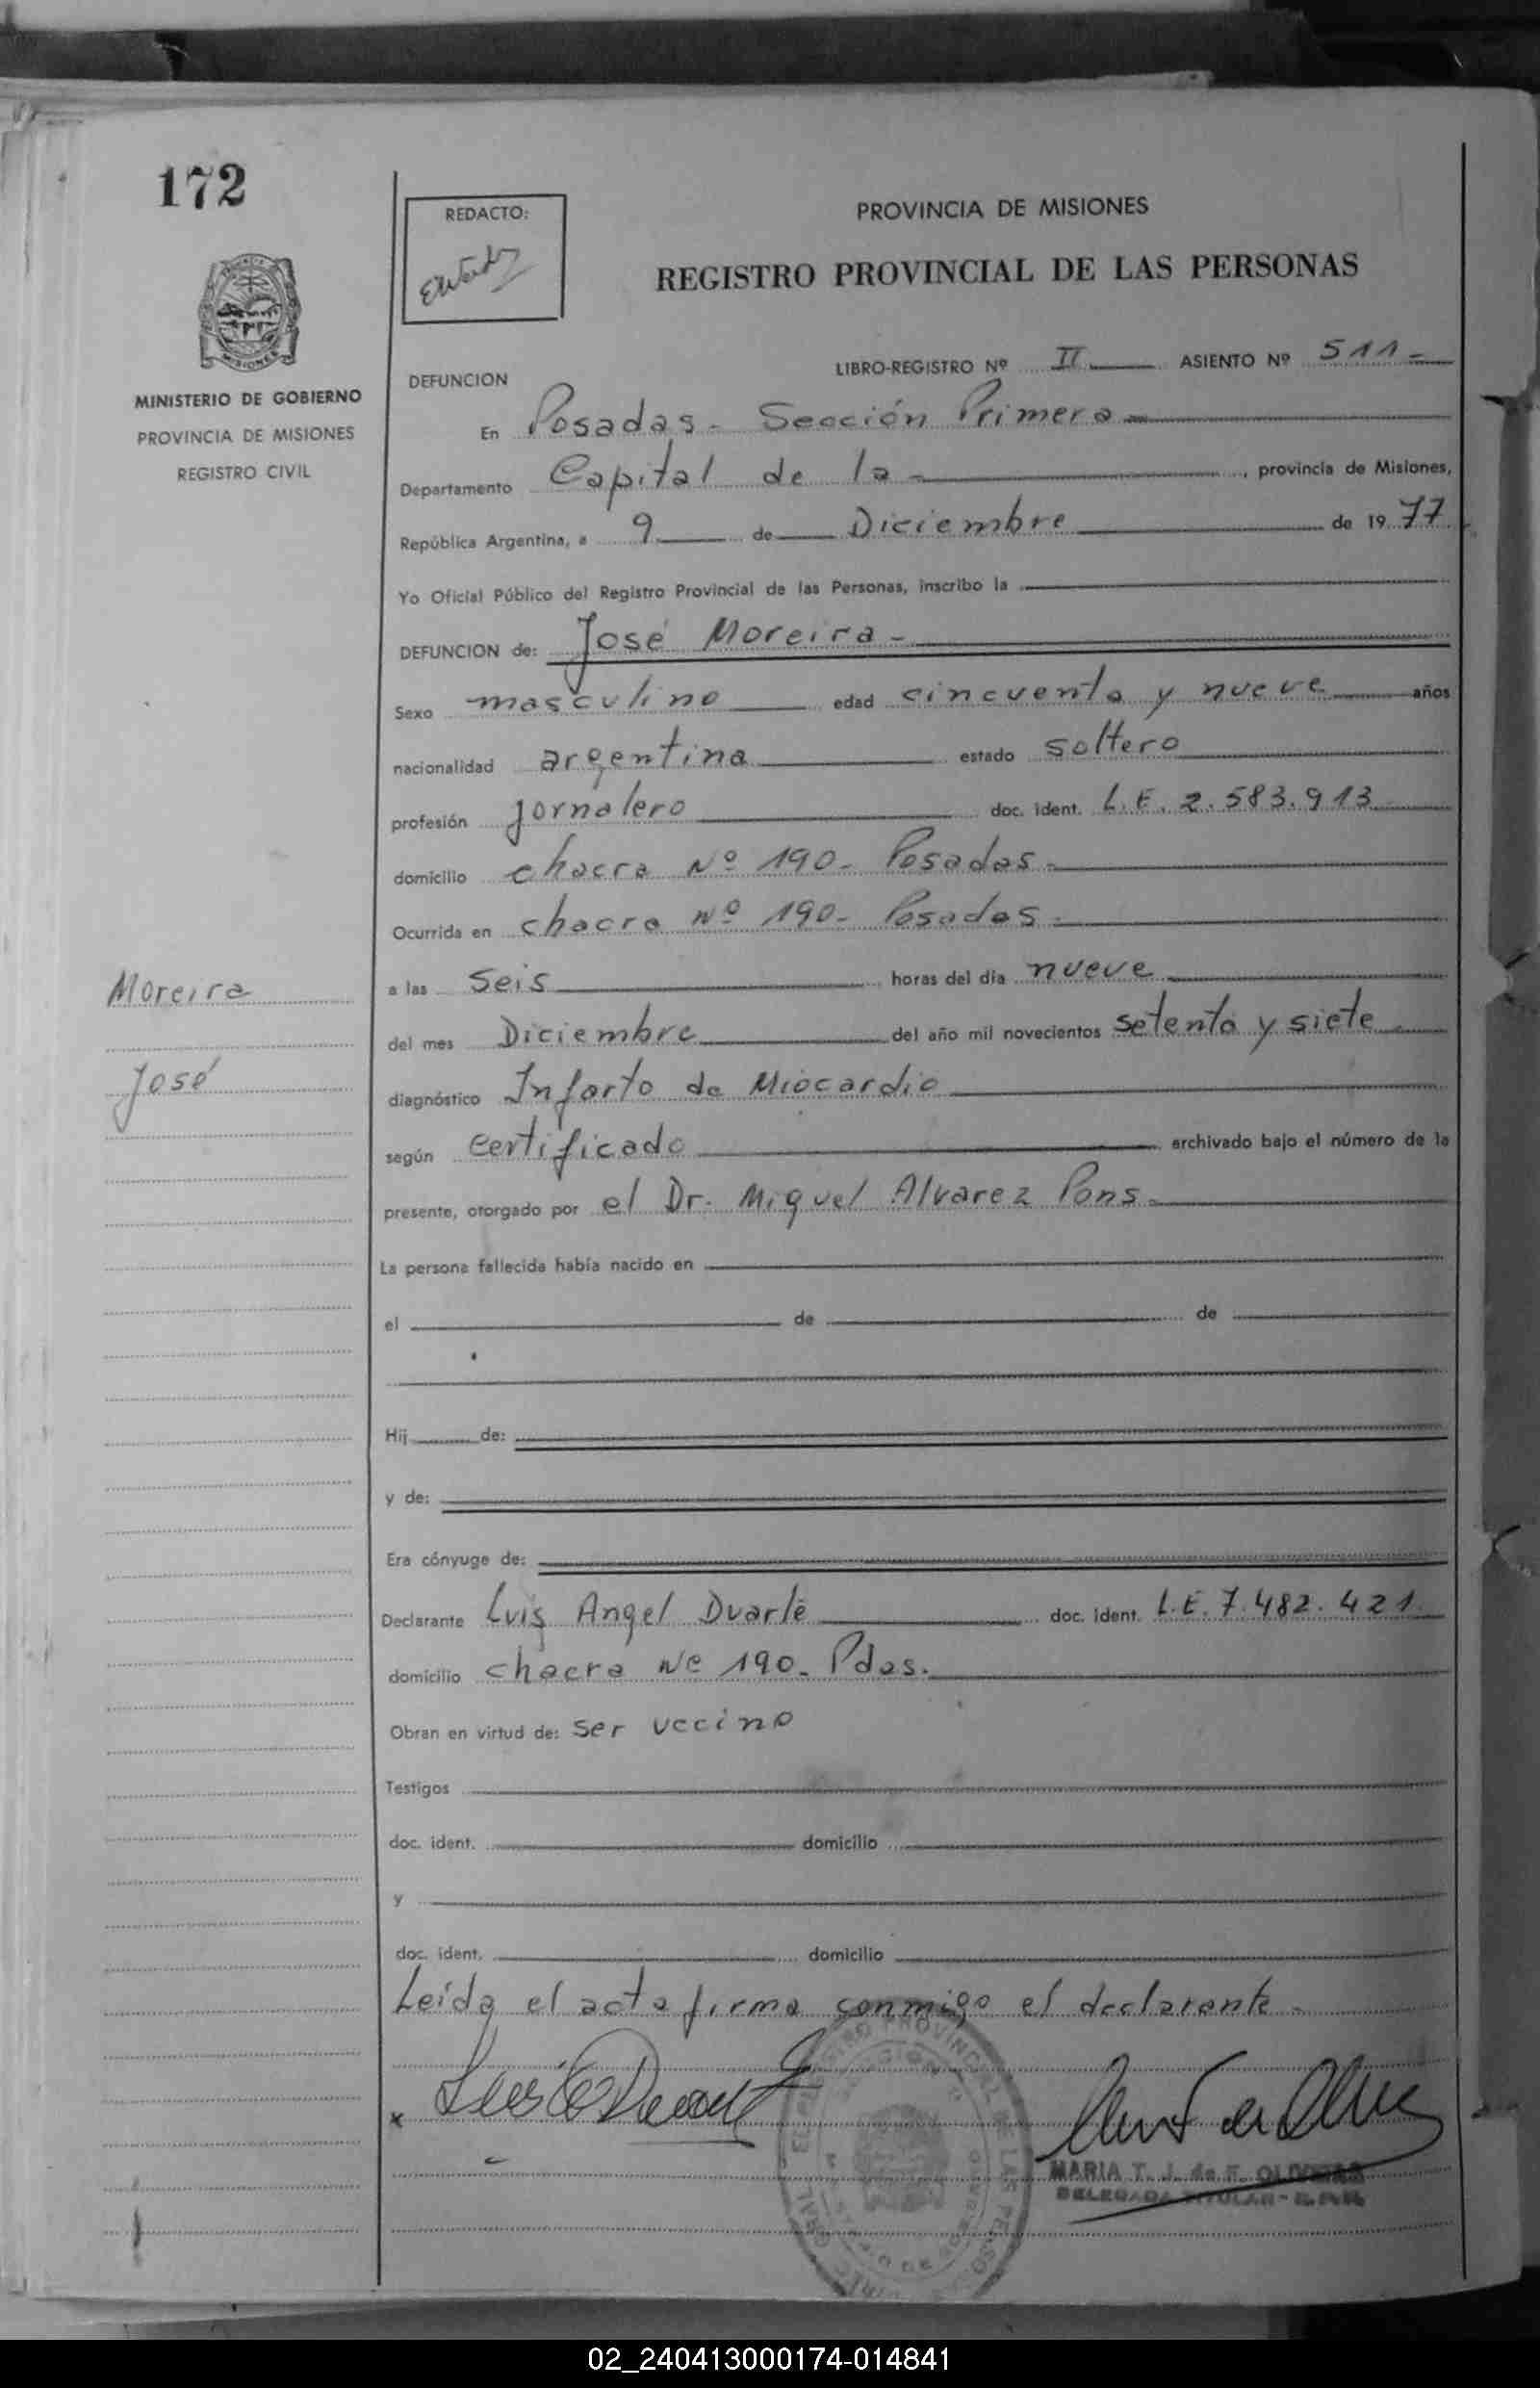 172
REDACTO:
PROVINCIA DE MISIONES
REGISTRO PROVINCIAL DE LAS PERSONAS
MISIONES
MINISTERIO DE GOBIERNO
PROVINCIA DE MISIONES
REGISTRO CIVIL
LIBRO-REGISTRO Nº II ASIENTO Nº 511-
DEFUNCION
En Posadas - Sección Primera
Departamento Capital de la - , provincia de Misiones,
República Argentina, a 9 de Diciembre de 1977
Yo Oficial Público del Registro Provincial de las Personas, inscribo la
DEFUNCION de: José Moreira -
Sexo masculino edad cincuenta y nueve años
nacionalidad argentina estado soltero
profesión jornalero doc. ident. L.E. 2.583.913
domicilio chacra Nº 190- Posadas-
Ocurrida en chacra Nº 190- Posadas-
a las seis horas del día nueve
del mes Diciembre del año mil novecientos setenta y siete
diagnóstico Infarto de Miocardio
según certificado archivado bajo el número de la
presente, otorgado por el Dr. Miguel Alvarez Pons-
La persona fallecida había nacido en
el de de
Hij de:
y de:
Era cónyuge de:
Declarante Luis Angel Duarte doc. ident. L.E. 7.482.421
domicilio chacra Nº 190- Pdas.
Obran en virtud de: ser vecino
Testigos
doc. ident. domicilio
y
doc. ident. domicilio
Leída el acta firma conmigo el declarante -
Moreira
José
x
MARIA T. J. de F. OLIVERA
DELEGADA TITULAR - R.P.P.
02_240413000174-014841